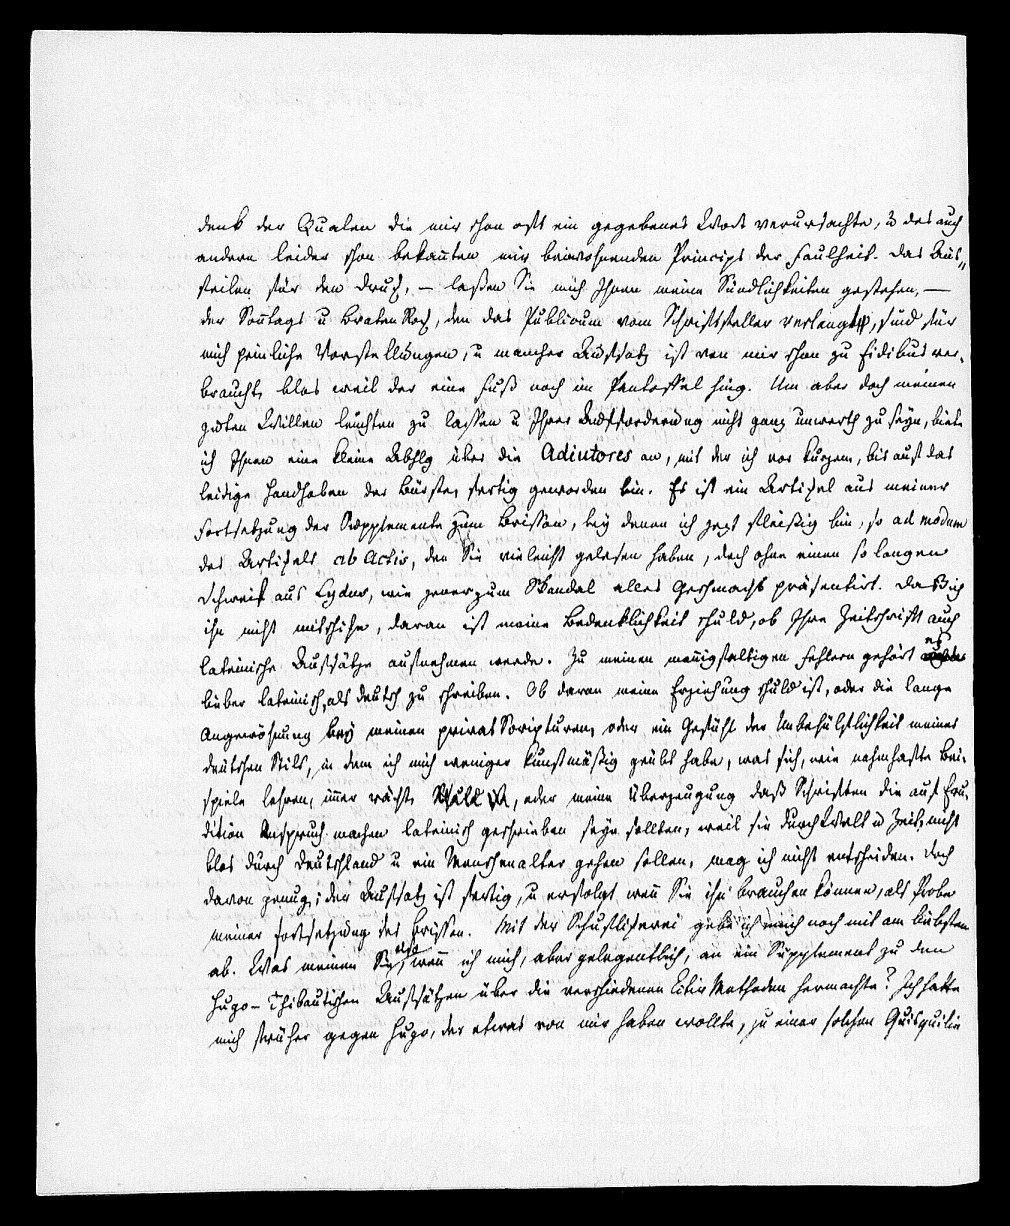 denk der Qualen die mir schon oft ein gegebenes Wort verursachte, u des auch
andern leider schon bekanten mir beiwohnenden Princips der Faulheit. Das Aus„
feilen für den Druck, – laßen Sie mich Ihnen meine Sündlichkeiten gestehen, –
der Sontags u Braten Rock, den das Publicum vom Schriftsteller verlangt, sind für
mich peinliche Vorstellungen, u mancher Aufsatz ist von mir schon zu Fidibus ver„
braucht, blos weil der eine Fuß noch im Pantoffel hing. Um aber doch meinen
guten Willen leuchten zu lassen u Ihrer Aufforderung nicht ganz unwerth zu seyn, biete
ich Ihnen eine kleine Abhlg über die Adiutores an, mit der ich vor kurzem, bis auf das
leidige Handhaben der Bürste, fertig geworden bin. Es ist ein Artikel aus meiner
Fortsetzung der Supplemente zum Brisson, bey denen ich jezt fleißig bin, so ad modum
des Artikels ab Actis, den Sie vielleicht gelesen haben, doch ohne einen so langen
Schweif aus Lydus, wie jener zum Skandal alles Geschmacks präsentirt. Daß ich
ihn nicht mitschike, daran ist meine Bedenklichkeit schuld, ob Ihre Zeitschrift auch
lateinische Aufsätze aufnehmen werde. Zu meinen manigfaltigen Fehlern gehört es
lieber lateinisch, als deutsch zu schreiben. Ob daran meine Erziehung schuld ist, oder die lange
Angewöhnung bey meinen privat Scripturen, oder ein Gefühl der Unbehülflichkeit meines
deutschen Stils, in dem ich mich weniger kunstmäßig geübt habe, was sich, wie nahmhafte Bei„
spiele lehren, imer rächt, oder meine Überzeugung daß Schriften die auf Eru„
dition Anspruch machen lateinisch geschrieben seyn sollten, weil sie durch Welt u Zeit, nicht
blos durch Deutschland u ein Menschenalter gehen sollen, mag ich nicht entscheiden. Doch
davon genug; der Aufsatz ist fertig, u erfolgt wenn Sie ihn brauchen können, als Probe
meiner Fortsetzung des Brisson. Mit der Schuflikerei gebe ich mich noch mit am liebsten
ab. Was meinen Sie also, wenn ich mich, aber gelegentlich, an ein Supplement zu den
Hugo-Thibautschen Aufsätzen über die verschiedenen Citir Methoden hermachte? Ich hatte
mich früher gegen Hugo, der etwas von mir haben wollte, zu einer solchen Quisquilie